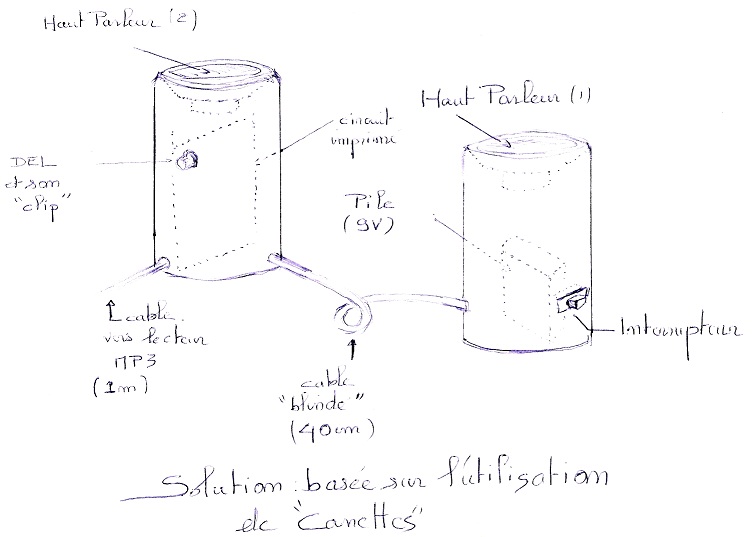 Haut Parleur (2)
Haut Parleur (1)
circuit
imprimé
DEL
et son
"clip"
Pile
(9V)
Interrupteur
cable
vers lecteur
MP3
(1m)
cable
"blindé"
(40cm)
Solution basée sur l'utilisation
de "Canettes"